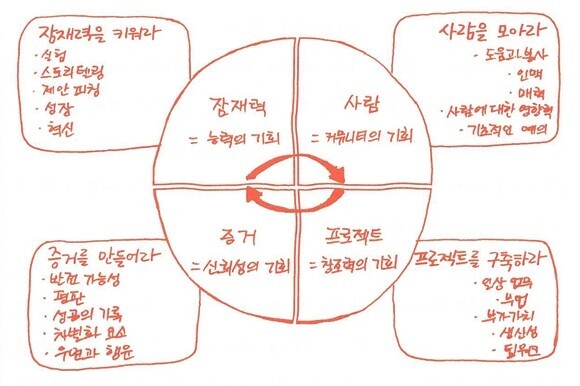 잠재력을 키워라
· 실험
· 스토리텔링
· 제안 피칭
· 성장
· 혁신
사람을 모아라
· 도움과 봉사
· 인맥
· 매력
· 사람에 대한 영향력
· 기초적인 예의
잠재력
= 능력의 기회
사람
= 커뮤니티의 기회
증거
= 신뢰성의 기회
프로젝트
= 창조력의 기회
증거를 만들어라
· 반전 가능성
· 평판
· 성공의 기록
· 차별화 요소
· 우연과 행운
프로젝트를 구축하라
· 일상 업무
· 부업
· 부가가치
· 생산성
· 팀워크